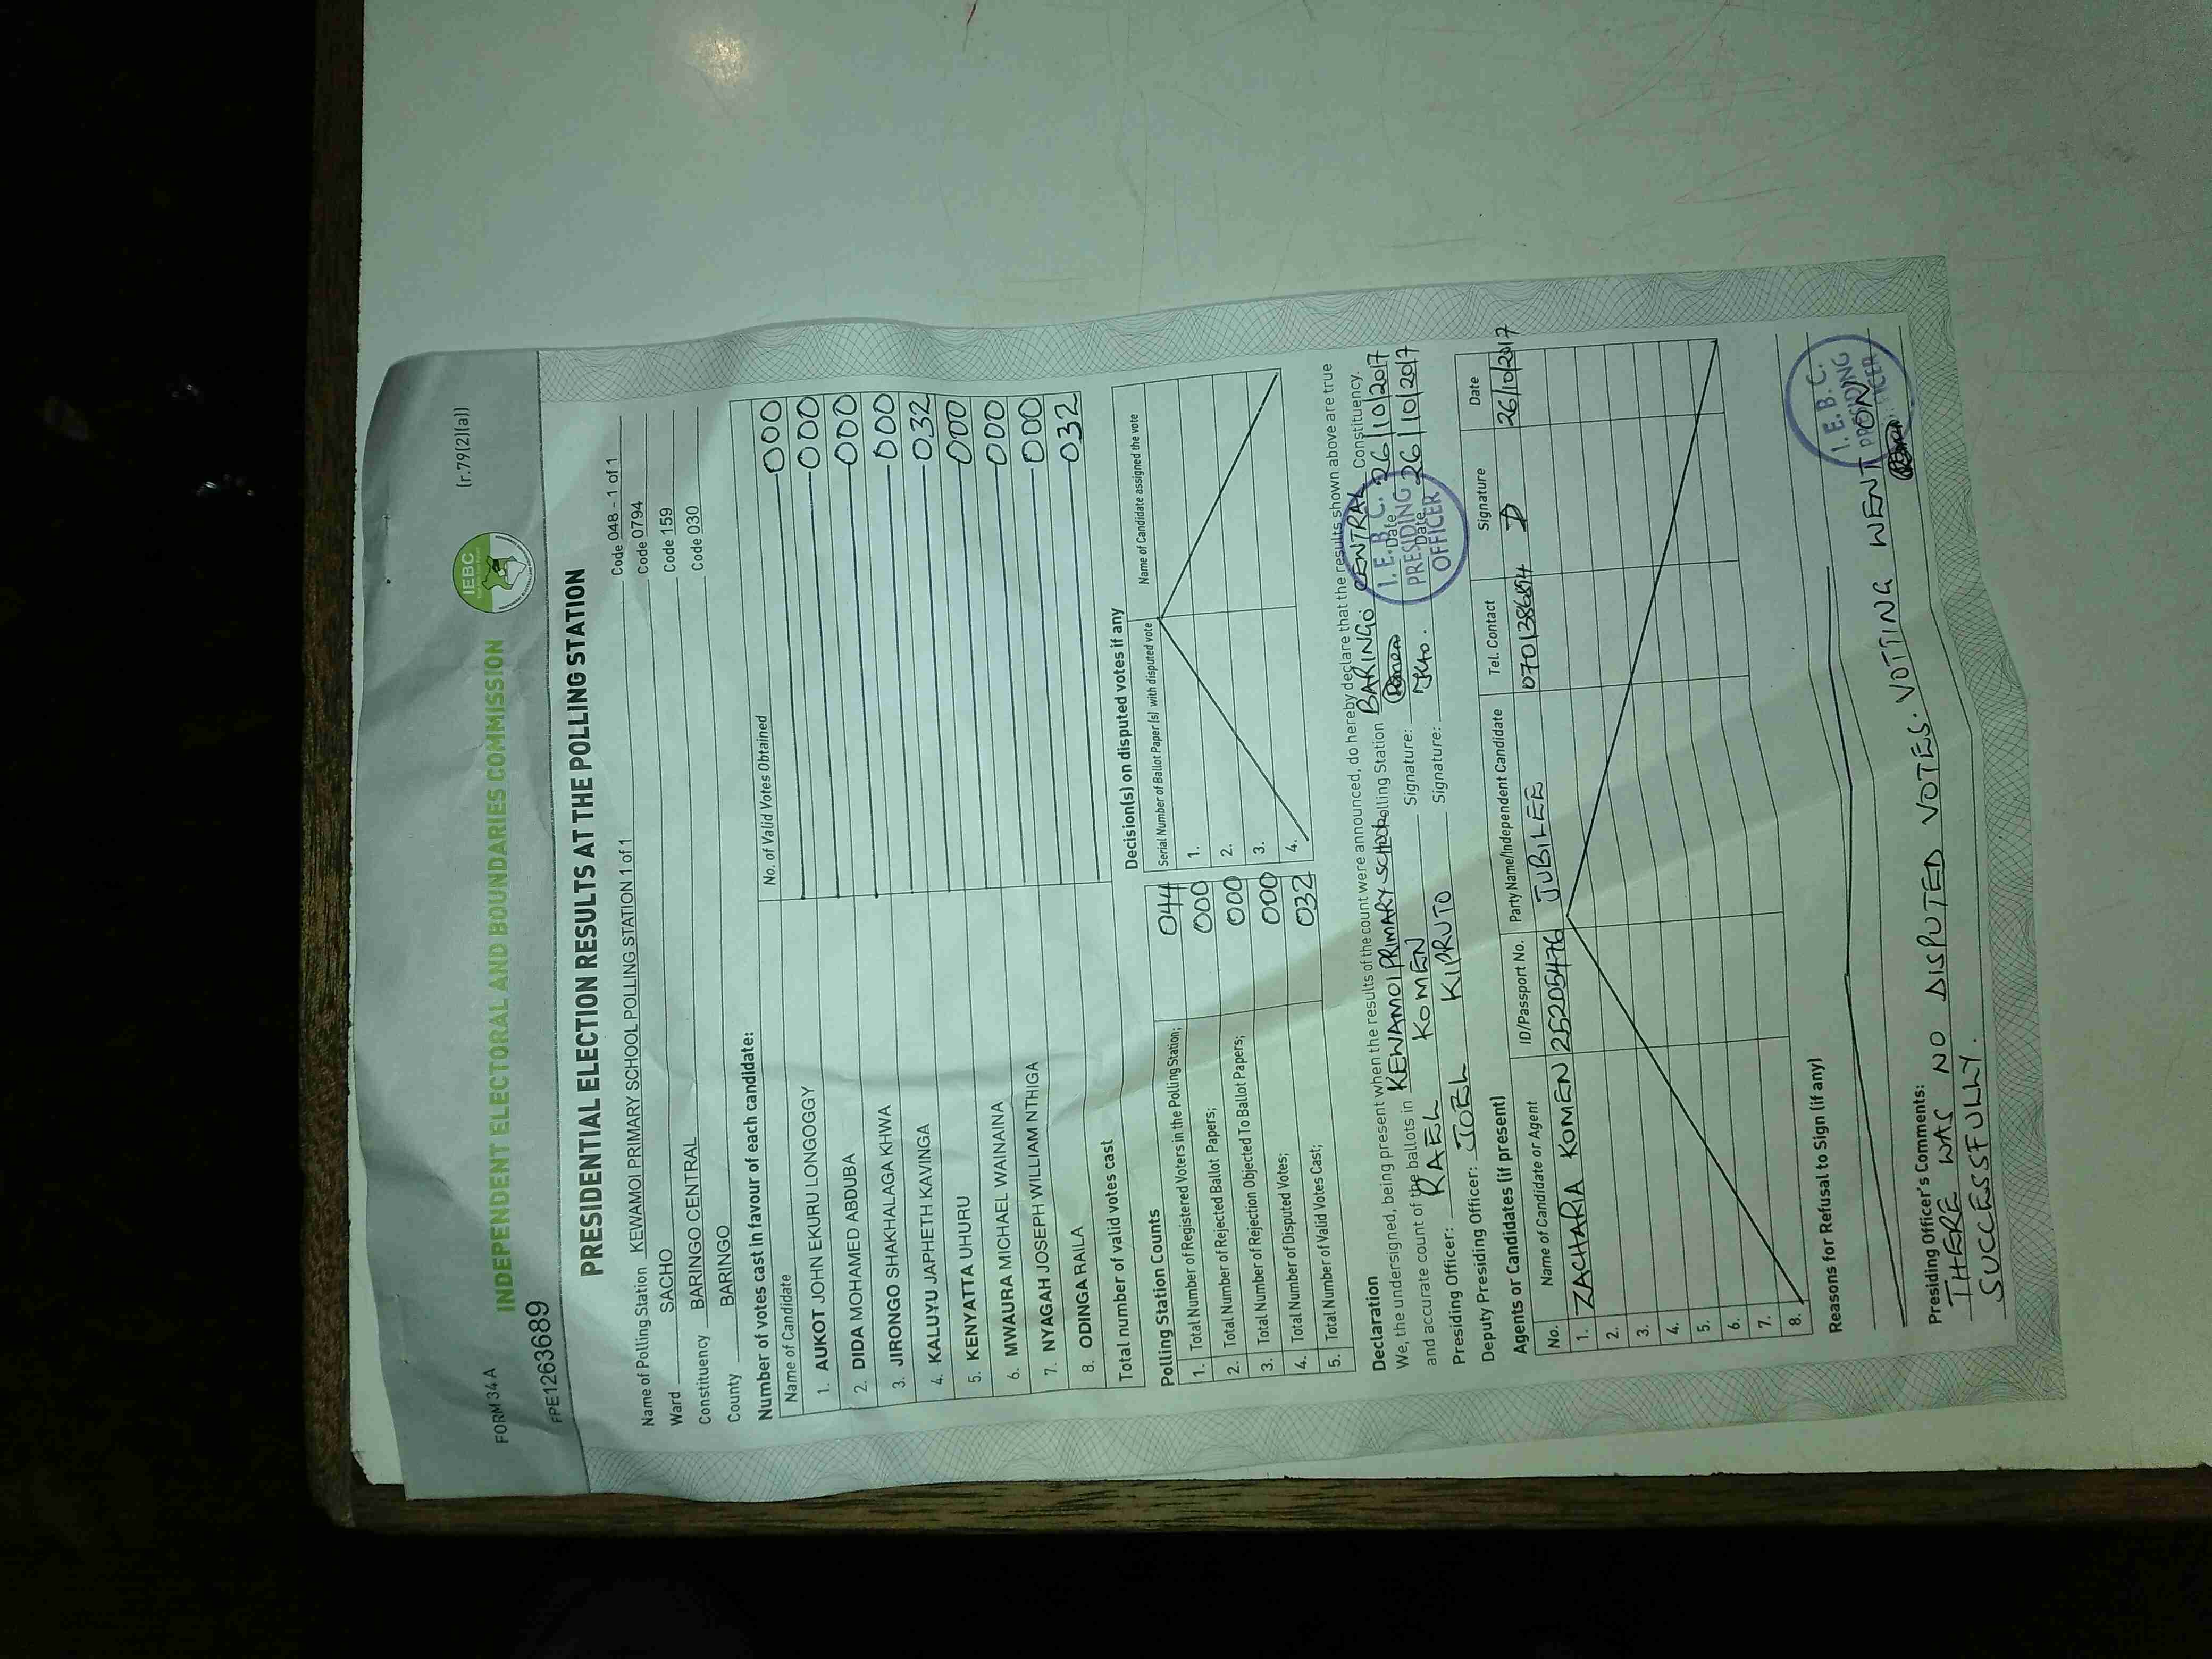 FORM 34 A
INDEPENDENT ELECTORAL AND BOUNDARIES COMMISSION
IEBC
(r.79(2)(a))
FPE1263689
PRESIDENTIAL ELECTION RESULTS AT THE POLLING STATION
Name of Polling Station KEWAMOI PRIMARY SCHOOL POLLING STATION 1 of 1 Code 048 - 1 of 1
Ward SACHO Code 0794
Constituency BARINGO CENTRAL Code 159
County BARINGO Code 030
Number of votes cast in favour of each candidate:
Name of Candidate No. of Valid Votes Obtained
1. AUKOT JOHN EKURU LONGOGGY 000
2. DIDA MOHAMED ABDUBA 000
3. JIRONGO SHAKHALAGA KHWA 000
4. KALUYU JAPHETH KAVINGA 000
5. KENYATTA UHURU 032
6. MWAURA MICHAEL WAINAINA 000
7. NYAGAH JOSEPH WILLIAM NTHIGA 000
8. ODINGA RAILA 000
Total number of valid votes cast 032
Polling Station Counts
1. Total Number of Registered Voters in the Polling Station; 044
2. Total Number of Rejected Ballot Papers; 000
3. Total Number of Rejection Objected To Ballot Papers; 000
4. Total Number of Disputed Votes; 000
5. Total Number of Valid Votes Cast; 032
Decision(s) on disputed votes if any
Serial Number of Ballot Paper(s) with disputed vote Name of Candidate assigned the vote
1.
2.
3.
4.
Declaration
We, the undersigned, being present when the results of the count were announced, do hereby declare that the results shown above are true
and accurate count of the ballots in KEWAMOI PRIMARY SCHOOL Polling Station BARINGO CENTRAL Constituency.
Presiding Officer: RAEL KOMEN Signature: Date 26/10/2017
Deputy Presiding Officer: JOEL KIPRUTO Signature: Date 26/10/2017
I.E.B.C.
PRESIDING
OFFICER
Agents or Candidates (if present)
No. Name of Candidate or Agent ID/Passport No. Party Name/Independent Candidate Tel. Contact Signature Date
1. ZACHARIA KOMEN 25205476 JUBILEE 0701386894 26/10/2017
2.
3.
4.
5.
6.
7.
8.
Reasons for Refusal to Sign (if any)
Presiding Officer's Comments:
THERE WAS NO DISPUTED VOTES. VOTING WENT ON
SUCCESSFULLY.
I.E.B.C.
PRESIDING
OFFICER